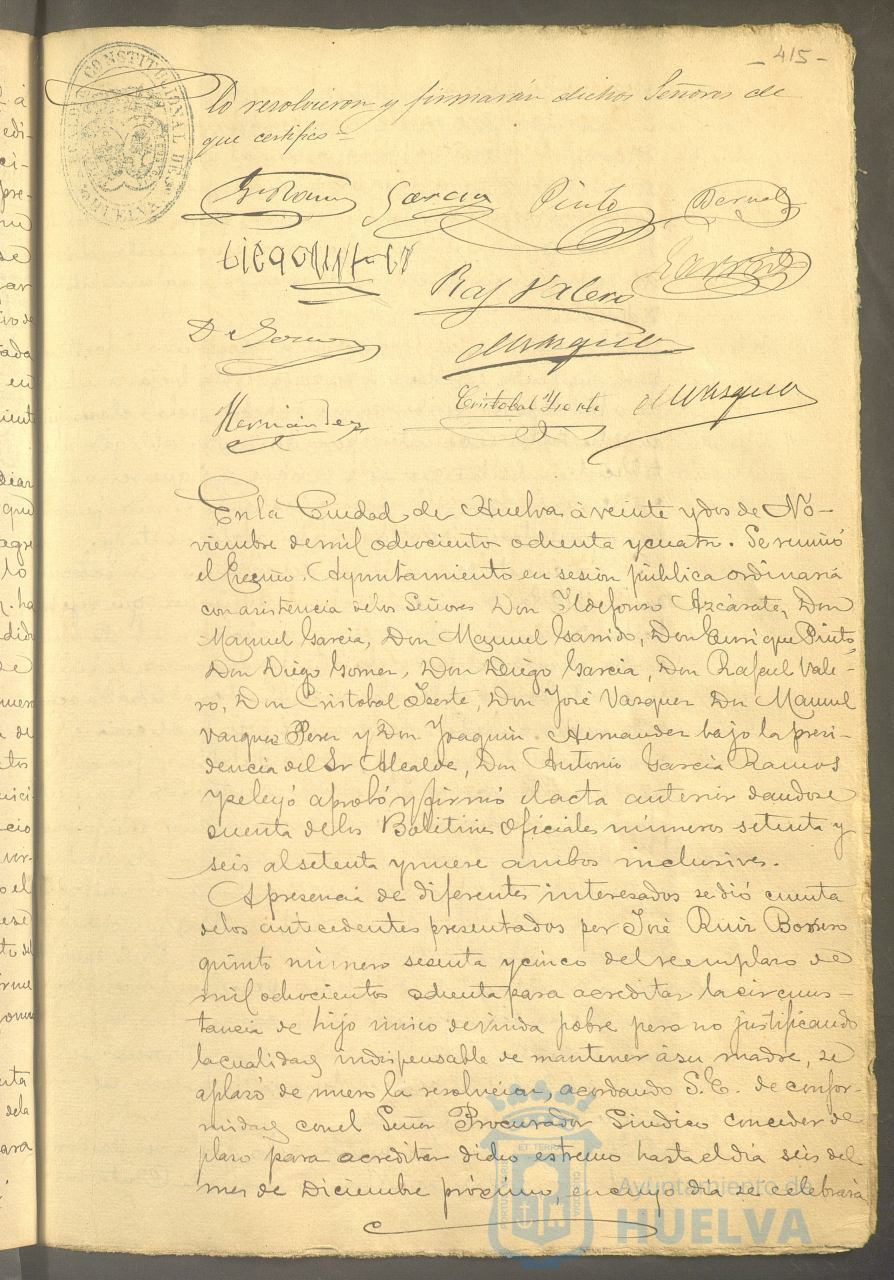 - 415 -
lo resolvieron y firmarán dichos Señores de
que certifico=
García Pinto Bernal
Garrido
Raf Valero
D Gomez
M Vazquez
Hernandez Cristobal Iserte M Vazquez
En la Ciudad de Huelva á veinte y dos de No-
viembre de mil ochocientos ochenta y cuatro. Se reunió
el Excmo. Ayuntamiento en sesión pública ordinaria
con asistencia de los Señores Don Ildefonso Azcárate, Don
Manuel Garcia, Don Manuel Garrido, Don Enrique Pinto,
Don Diego Gomez, Don Diego Garcia, Don Rafael Vale-
ro, Don Cristobal Iserte, Don José Vazquez Don Manuel
Vazquez Perez y Don Joaquin Hernandez bajo la presi-
dencia del Sr Alcalde, Don Antonio Garcia Ramos
y se leyó aprobó y firmó el acta anterior dandose
cuenta de los Boletines Oficiales números setenta y
seis al setenta y nueve ambos inclusives.
A presencia de diferentes interesados se dió cuenta
de los antecedentes presentados por José Ruiz Borrero
quinto número sesenta y cinco del reemplazo de
mil ochocientos ochenta para acreditar la circuns-
tancia de hijo único de viuda pobre pero no justificando
la cualidad indispensable de mantener á su madre, se
aplazó de nuevo la resolución, acordando S.E. de confor-
midad con el Señor Procurador Sindico conceder de
plazo para acreditar dicho estremo hasta el dia seis del
mes de Diciembre próximo, en cuyo dia se celebrará
Ayuntamiento de
HUELVA